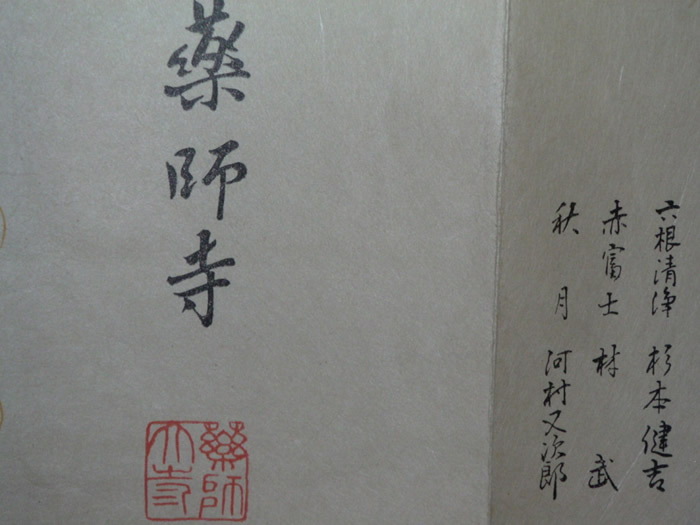 六根清浄 杉本健吉
赤富士 林 武
秋月 河村又次郎
藥師寺
藥師大寺